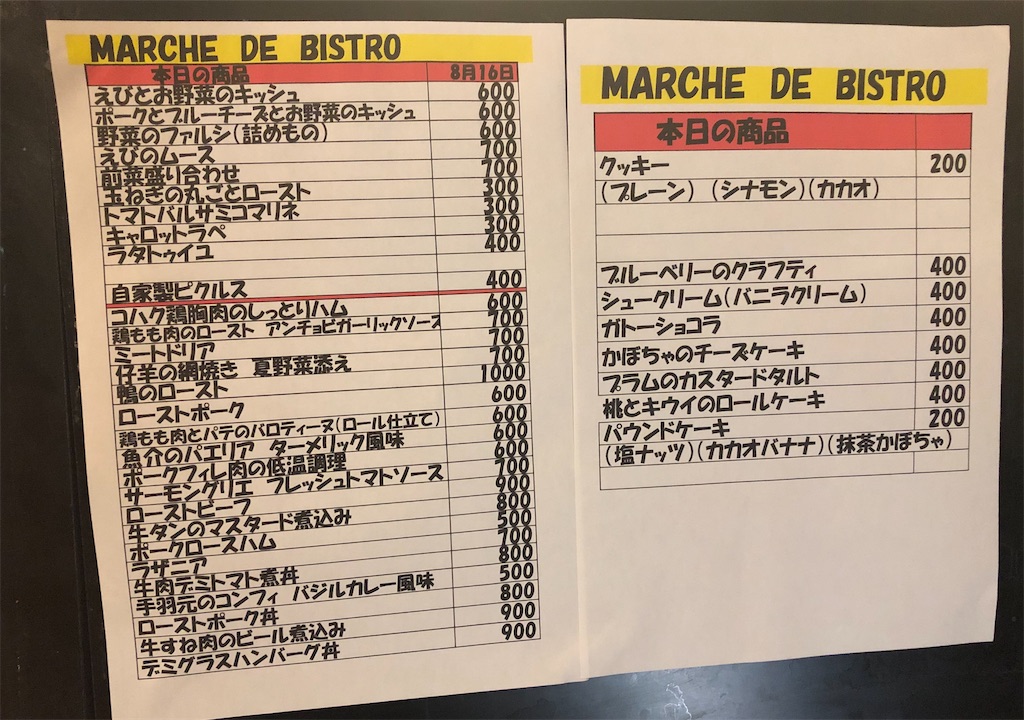 MARCHE DE BISTRO
本日の商品 8月16日
えびとお野菜のキッシュ 600
ポークとブルーチーズとお野菜のキッシュ 600
野菜のファルシ(詰めもの) 600
えびのムース 700
前菜盛り合わせ 700
玉ねぎの丸ごとロースト 300
トマトバルサミコマリネ 300
キャロットラペ 300
ラタトゥイユ 400
自家製ピクルス 400
コハク鶏胸肉のしっとりハム 600
鶏もも肉のロースト アンチョビガーリックソース 700
ミートドリア 700
仔羊の網焼き 夏野菜添え 700
鴨のロースト 1000
ローストポーク 600
鶏もも肉とパテのバロティーヌ(ロール仕立て) 600
魚介のパエリア ターメリック風味 600
ポークフィレ肉の低温調理 600
サーモングリエ フレッシュトマトソース 700
ローストビーフ 900
牛タンのマスタード煮込み 800
ポークロースハム 500
ラザニア 700
牛肉デミトマト煮丼 800
手羽元のコンフィ バジルカレー風味 500
ローストポーク丼 800
牛すね肉のビール煮込み 900
デミグラスハンバーグ丼 900
MARCHE DE BISTRO
本日の商品
クッキー 200
(プレーン) (シナモン)(カカオ)
ブルーベリーのクラフティ 400
シュークリーム(バニラクリーム) 400
ガトーショコラ 400
かぼちゃのチーズケーキ 400
プラムのカスタードタルト 400
桃とキウイのロールケーキ 400
パウンドケーキ 200
(塩ナッツ)(カカオバナナ)(抹茶かぼちゃ)